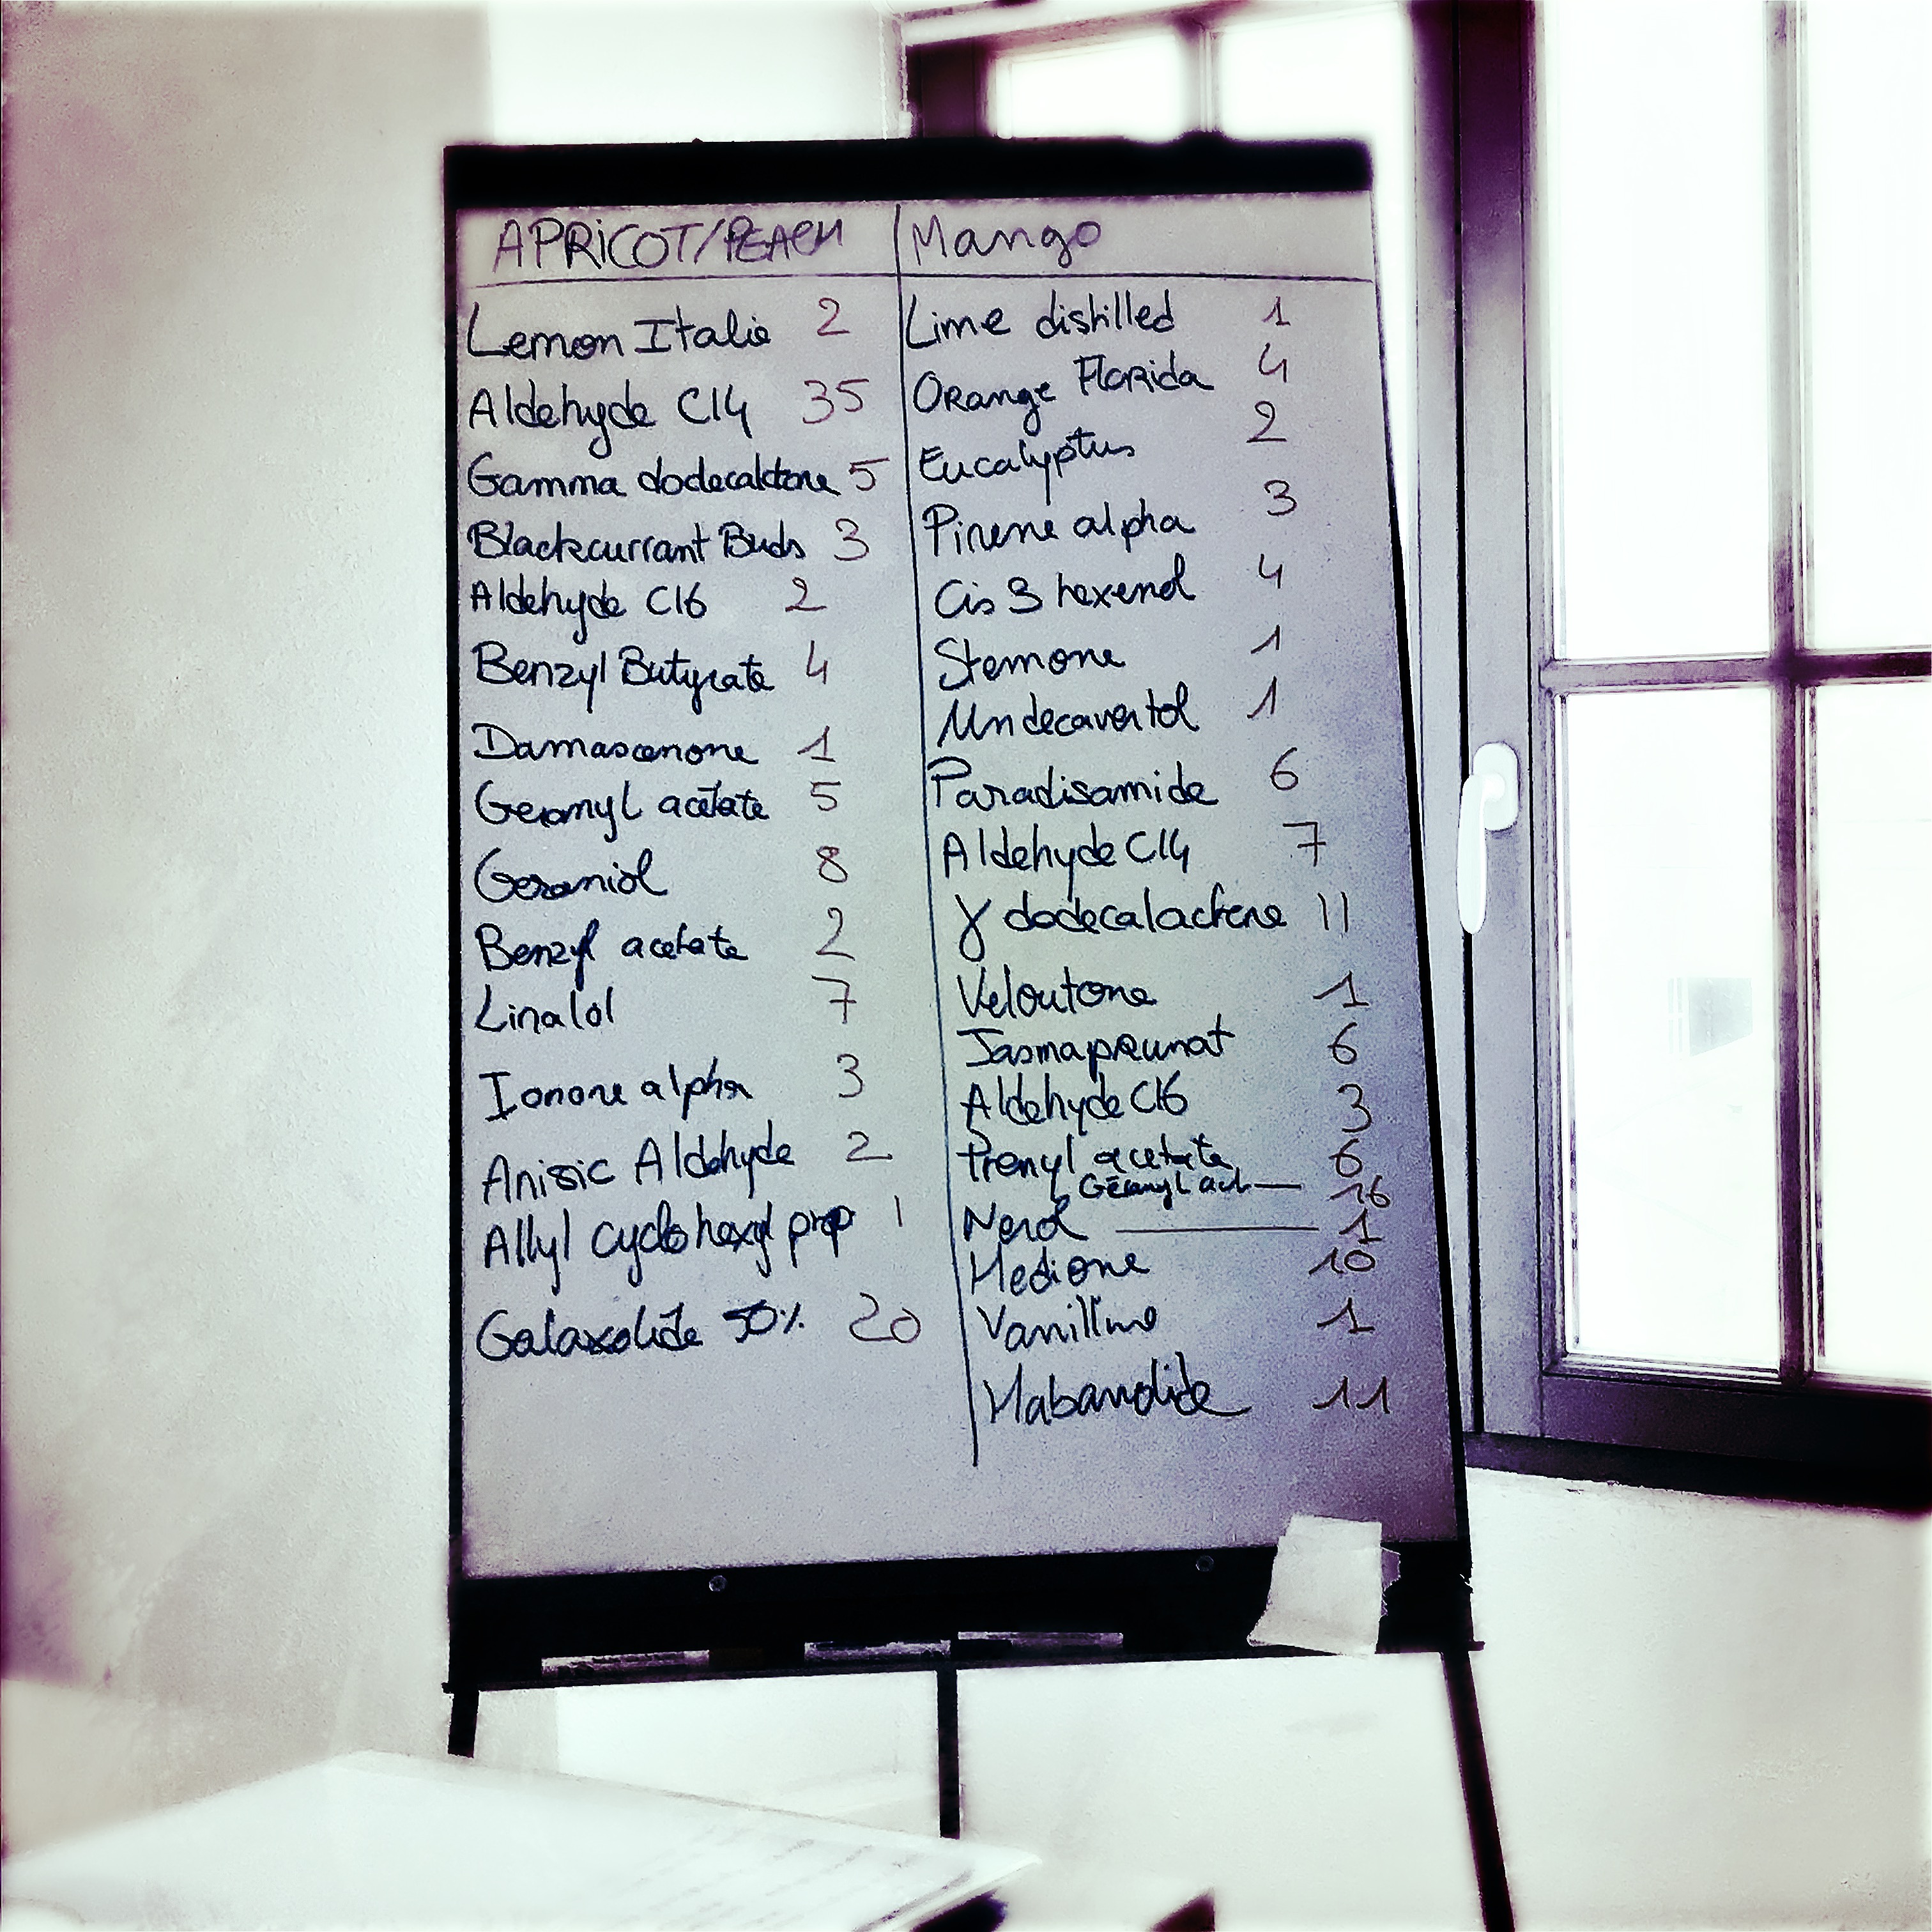 APRiCOT/PEACH
Lemon Italie 2
Aldehyde C14 35
Gamma dodecalctone 5
Blackcurrant Buds 3
Aldehyde C16 2
Benzyl Butyrate 4
Damascenone 1
Geranyl acetate 5
Geraniol 8
Benzyl acetate 2
Linalol 7
Ionone alpha 3
Anisic Aldehyde 2
Allyl cyclohexyl prop 1
Galaxolide 50% 20
Mango
Lime distilled 1
Orange Florida 4
Eucalyptus 2
Pinene alpha 3
Cis 3 hexenol 4
Stemone 1
Undecavertol 1
Paradisamide 6
Aldehyde C14 7
γ dodecalactone 11
Veloutone 1
Jasmapreunat 6
Aldehyde C16 3
Prenyl acetate 6
Géranyl act — 16
Nerol — 1
Hedione 10
Vanilline 1
Habanolide 11